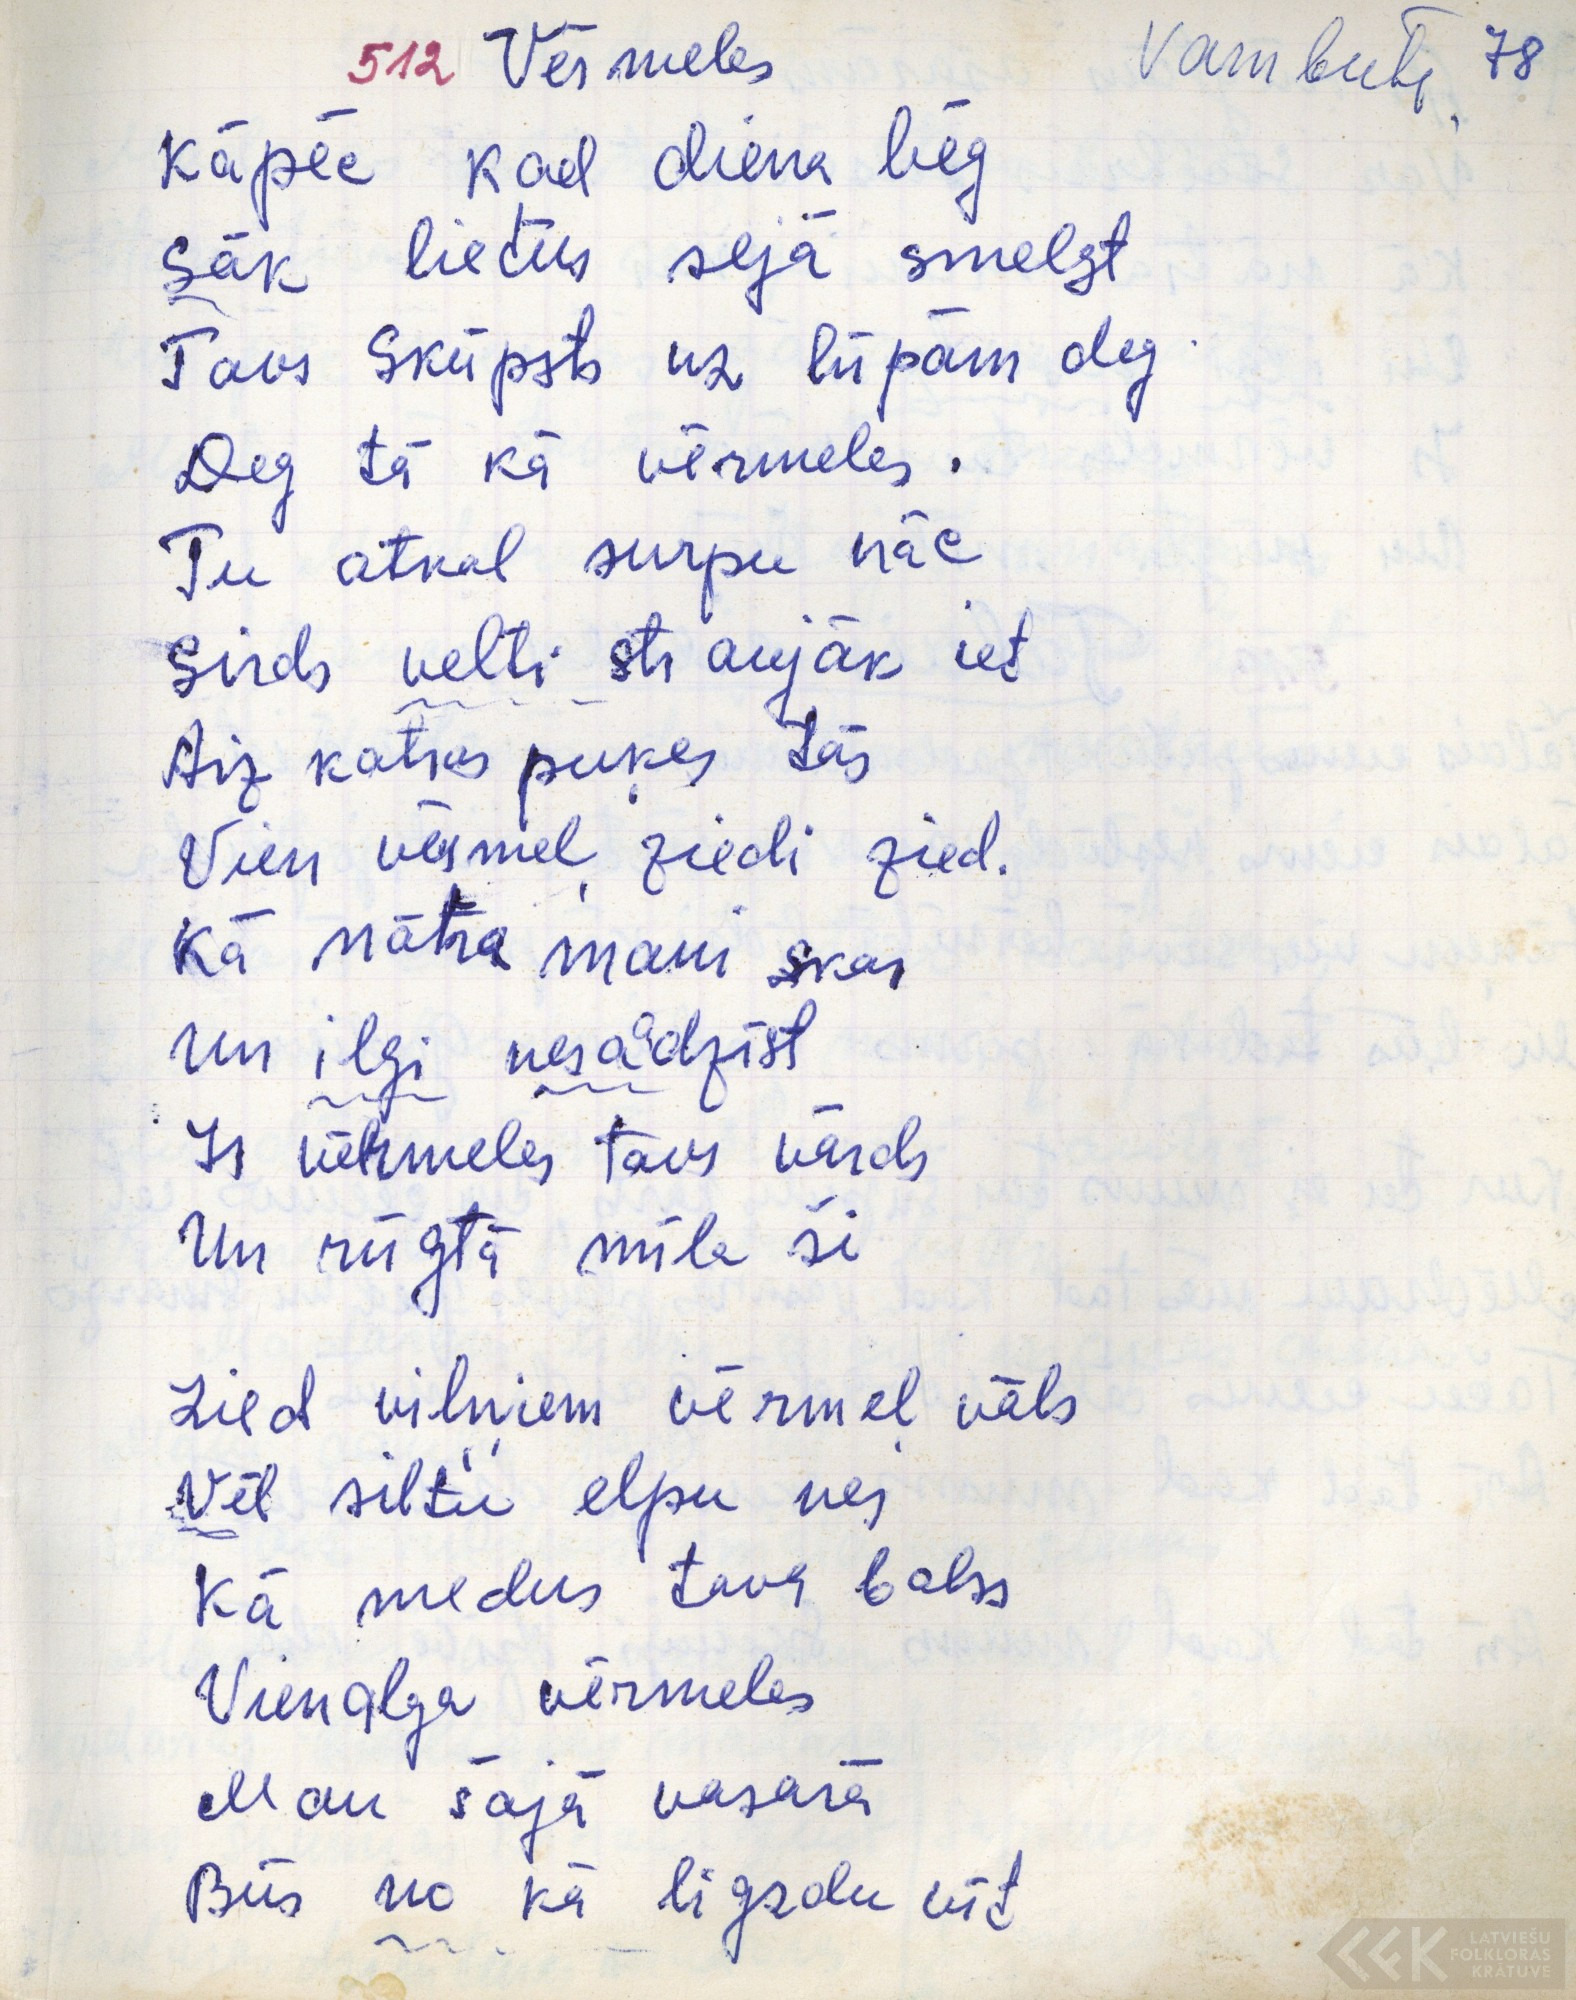 512 Vērmeles
Vambutu, 78
Kāpēc kad diena bēg
Sāk lietus sejā smelgt
Tavs Skūpsts uz lūpām deg.
Deg tā kā vērmeles.
Tu atkal surpu nāc
Sirds velti straujāk iet
Aiz katras puķes tās
Vien vērmeļ ziedi zied.
Kā nātra mani skar
Un ilgi nesadzīst
Ir vērmeles tavs vārds
Un rūgtā mīla šī
Zied viļņiem vērmeļ vāls
Vēl siltu elpu nes
Kā medus tava balss
Vienalga vērmeles
Man šajā vasarā
Būs no kā ligzdu vīt
LATVIEŠU
FOLKLORAS
KRĀTUVE